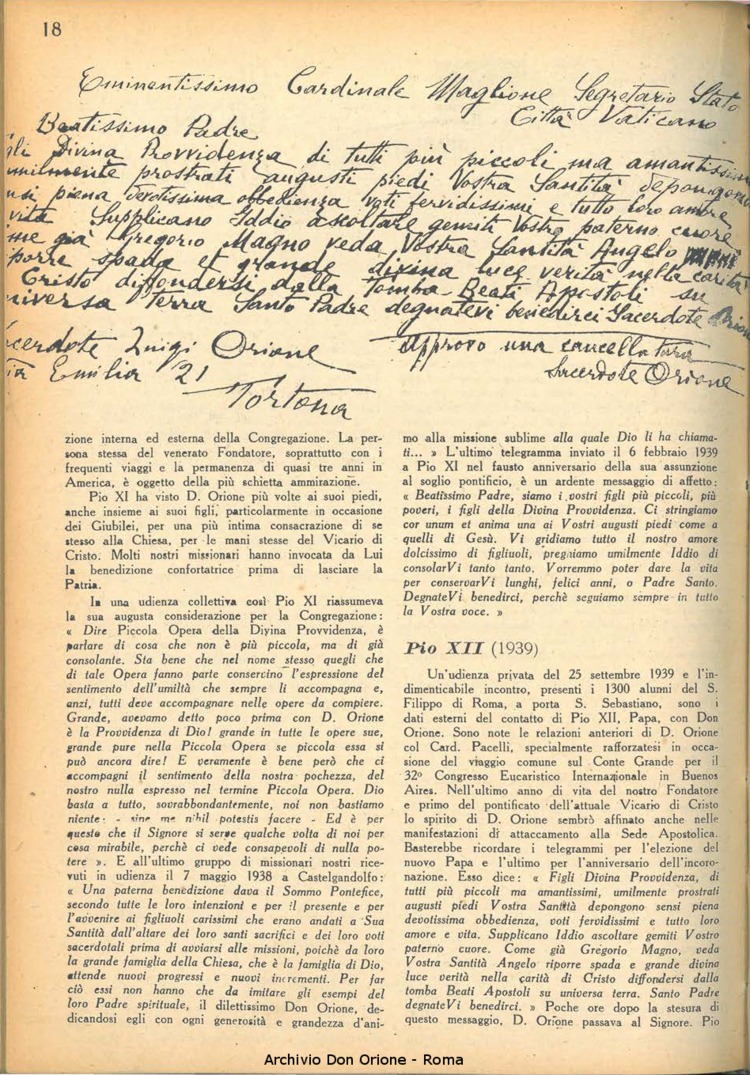 18
Eminentissimo Cardinale Maglione Segretario Stato
Città Vaticano
Beatissimo Padre
gli Divina Provvidenza di tutti più piccoli ma amantissimi
umilmente prostrati augusti piedi Vostra Santità depongono
nsi piena devotissima obbedienza voti fervidissimi e tutto loro amore
vita Supplicano Iddio ascoltare gemiti Vostro paterno cuore
me già Gregorio Magno veda Vostra Santità Angelo
porre spada et grande divina luce verità nella carità
Cristo diffondersi dalla tomba Beati Apostoli su
niversa terra Santo Padre degnatevi benedirci Sacerdote Orione
cerdote Luigi Orione
ia Emilia 21
Tortona
Approvo una cancellatura
Sacerdote Orione
zione interna ed esterna della Congregazione. La per-
sona stessa del venerato Fondatore, soprattutto con i
frequenti viaggi e la permanenza di quasi tre anni in
America, è oggetto della più schietta ammirazione.
Pio XI ha visto D. Orione più volte ai suoi piedi,
anche insieme ai suoi figli, particolarmente in occasione
dei Giubilei, per una più intima consacrazione di se
stesso alla Chiesa, per le mani stesse del Vicario di
Cristo. Molti nostri missionari hanno invocata da Lui
la benedizione confortatrice prima di lasciare la
Patria.
In una udienza collettiva così Pio XI riassumeva
la sua augusta considerazione per la Congregazione:
« Dire Piccola Opera della Divina Provvidenza, è
parlare di cosa che non è più piccola, ma di già
consolante. Sta bene che nel nome stesso quegli che
di tale Opera fanno parte conservino l'espressione del
sentimento dell'umiltà che sempre li accompagna e,
anzi, tutti deve accompagnare nelle opere da compiere.
Grande, avevamo detto poco prima con D. Orione
è la Provvidenza di Dio! grande in tutte le opere sue,
grande pure nella Piccola Opera se piccola essa si
può ancora dire! E veramente è bene però che ci
accompagni il sentimento della nostra pochezza, del
nostro nulla espresso nel termine Piccola Opera. Dio
basta a tutto, sovrabbondantemente, noi non bastiamo
niente: - sine me nihil potestis facere - Ed è per
questo che il Signore si serve qualche volta di noi per
cosa mirabile, perchè ci vede consapevoli di nulla po-
tere ». E all'ultimo gruppo di missionari nostri rice-
vuti in udienza il 7 maggio 1938 a Castelgandolfo:
« Una paterna benedizione dava il Sommo Pontefice,
secondo tutte le loro intenzioni e per il presente e per
l'avvenire ai figliuoli carissimi che erano andati a Sua
Santità dall'altare dei loro santi sacrifici e dei loro voti
sacerdotali prima di avviarsi alle missioni, poichè da loro
la grande famiglia della Chiesa, che è la famiglia di Dio,
attende nuovi progressi e nuovi incrementi. Per far
ciò essi non hanno che da imitare gli esempi del
loro Padre spirituale, il dilettissimo Don Orione, de-
dicandosi egli con ogni generosità e grandezza d'ani-
mo alla missione sublime alla quale Dio li ha chiama-
ti... » L'ultimo telegramma inviato il 6 febbraio 1939
a Pio XI nel fausto anniversario della sua assunzione
al soglio pontificio, è un ardente messaggio di affetto:
« Beatissimo Padre, siamo i vostri figli più piccoli, più
poveri, i figli della Divina Provvidenza. Ci stringiamo
cor unum et anima una ai Vostri augusti piedi come a
quelli di Gesù. Vi gridiamo tutto il nostro amore
dolcissimo di figliuoli, preghiamo umilmente Iddio di
consolarVi tanto tanto. Vorremmo poter dare la vita
per conservarVi lunghi, felici anni, o Padre Santo.
DegnateVi benedirci, perchè seguiamo sempre in tutto
la Vostra voce. »
Pio XII (1939)
Un'udienza privata del 25 settembre 1939 e l'in-
dimenticabile incontro, presenti i 1300 alunni del S.
Filippo di Roma, a porta S. Sebastiano, sono i
dati esterni del contatto di Pio XII, Papa, con Don
Orione. Sono note le relazioni anteriori di D. Orione
col Card. Pacelli, specialmente rafforzatesi in occa-
sione del viaggio comune sul Conte Grande per il
32º Congresso Eucaristico Internazionale in Buenos
Aires. Nell'ultimo anno di vita del nostro Fondatore
e primo del pontificato dell'attuale Vicario di Cristo
lo spirito di D. Orione sembrò affinato anche nelle
manifestazioni di attaccamento alla Sede Apostolica.
Basterebbe ricordare i telegrammi per l'elezione del
nuovo Papa e l'ultimo per l'anniversario dell'incoro-
nazione. Esso dice: « Figli Divina Provvidenza, di
tutti più piccoli ma amantissimi, umilmente prostrati
augusti piedi Vostra Santità depongono sensi piena
devotissima obbedienza, voti fervidissimi e tutto loro
amore e vita. Supplicano Iddio ascoltare gemiti Vostro
paterno cuore. Come già Gregorio Magno, veda
Vostra Santità Angelo riporre spada e grande divina
luce verità nella carità di Cristo diffondersi dalla
tomba Beati Apostoli su universa terra. Santo Padre
degnateVi benedirci. » Poche ore dopo la stesura di
questo messaggio, D. Orione passava al Signore. Pio
Archivio Don Orione - Roma